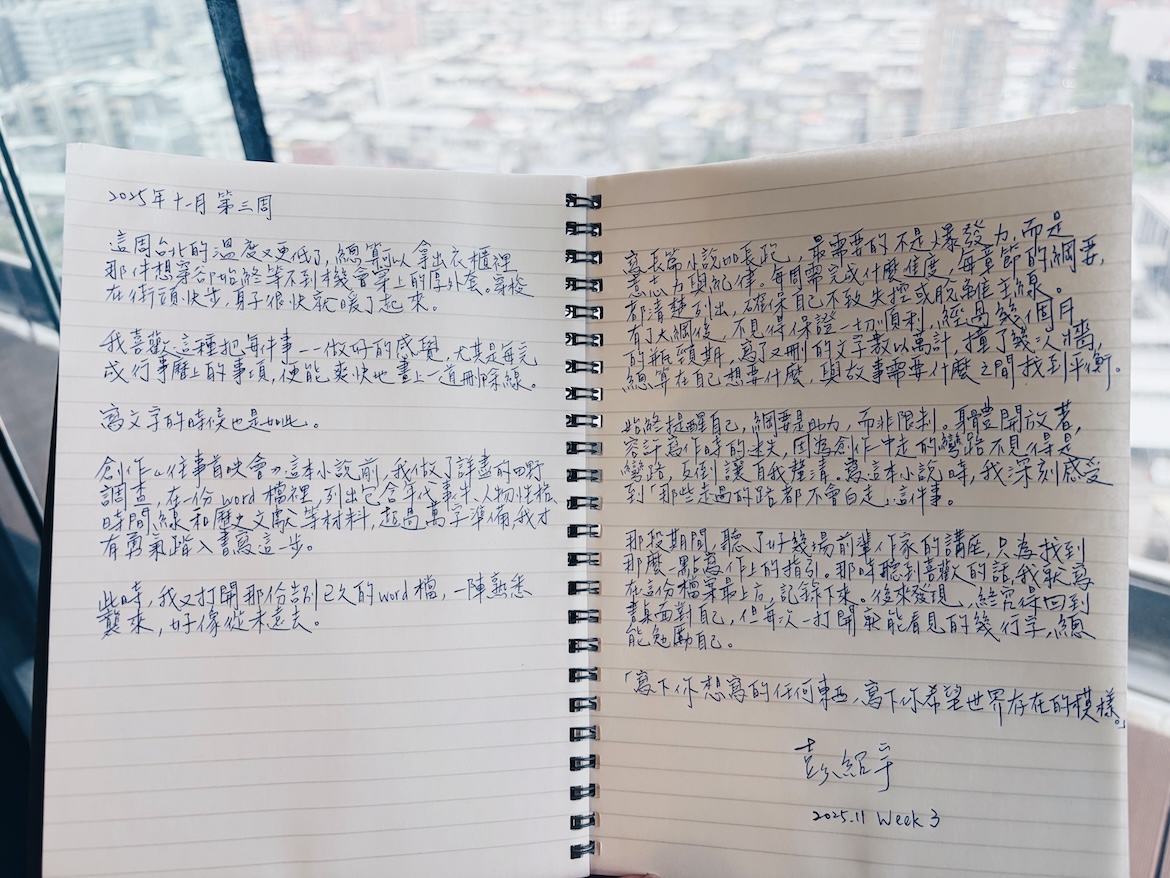 2025年十一月 第三周
這周台北的溫度又更低了,總算可以拿出衣櫃裡
那件想穿卻始終等不到機會穿上的厚外套。穿梭
在街頭快步,身子很快就暖了起來。
我喜歡這種把每件事一一做好的感覺,尤其是每完
成行事曆上的事項,便能爽快地畫上一道刪除線。
寫文字的時候也是如此。
創作《往事首映會》這本小說前,我做了詳盡的田野
調查,在一份word檔裡,列出包含年代事件、人物性格、
時間線和歷史文獻等材料,超過萬字準備,我才
有勇氣踏入書寫這一步。
此時,我又打開那份告別已久的word檔,一陣熟悉
襲來,好像從未遠去。
寫長篇小說如長跑,最需要的不是爆發力,而是
意志力須紀律。每周需完成什麼進度,每章節的綱要,
都清楚列出,確保自己不致失控或脫離主線。
有了大綱後,不見得保證一切順利,經過幾個月
的瓶頸期,寫了又刪的文字數以萬計,撞了幾次牆,
總算在自己想要什麼,與故事需要什麼之間找到平衡。
始終提醒自己,綱要是助力,而非限制。身體開放著,
容許寫作時的迷失,因為創作中走的彎路不見得是
彎路,反倒讓自我釐清。寫這本小說時,我深刻感受
到「那些走過的路都不會白走」這件事。
那段期間,聽了好幾場前輩作家的講座,只為找到
那麼一點寫作上的指引。那時聽到喜歡的話,我就寫
在這份檔案最上方,記錄下來。後來發現,終究得回到
書桌面對自己,但每次一打開就能看見的幾行字,總
能勉勵自己。
「寫下你想寫的任何東西,寫下你希望世界存在的模樣。」
彭紹宇
2025.11 Week 3